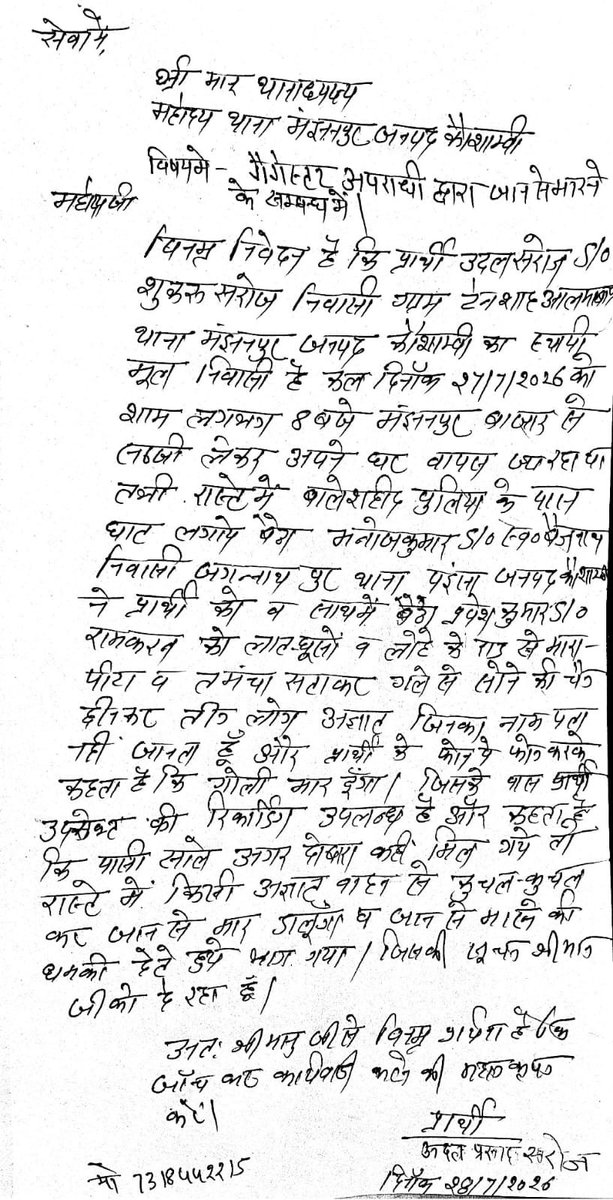 सेवा में,
श्री मान थानाध्यक्ष
महोदय थाना मंझनपुर जनपद कौशाम्बी
विषयमे - गैगेस्टर अपराधी द्वारा जान से मारने
के सम्बन्ध में।
महोदयजी
विनम्र निवेदन है कि प्रार्थी उदल सरोज S/o
शुकरू सरोज निवासी ग्राम टेनशाह आलमाबाद
थाना मंझनपुर जनपद कौशाम्बी का स्थायी
मूल निवासी है कल दिनाँक 27/7/2026 को
शाम लगभग 8 बजे मंझनपुर बाजार से
सब्जी लेकर अपने घर वापस जा रहा था
तभी रास्ते में बालेशहीद पुलिया के पास
घाट लगाये बैठा मनोजकुमार S/o स्व० बैजनाथ
निवासी जगन्नाथ पुर थाना पइंसा जनपद कौशाम्बी
ने प्रार्थी को व साथ में बैठे कुमार S/o
रामकरन को लात-घूसो व लोहे के राड से मारा-
पीटा व तमंचा सटाकर गले से सोने की चैन
छीनकर तीन लोग अज्ञात जिनका नाम पता
नहीं जानता हूँ और प्रार्थी के फोन पे फोन करके
कहता है कि गोली मार दूँगा। जिसके पास प्रार्थी
उपरोक्त की रिकार्डिंग उपलब्ध है और कहता है
कि पासी साले अगर दोबारा कहीं मिल गये तो
रास्ते में किसी अज्ञात वाहन से कुचल-कुचल
कर जान से मार डालूंगा व जान से मारने की
धमकी देते हुये भाग गया। जिसकी सूचना श्रीमान
जी को दे रहा हूँ।
अतः श्रीमान जी से विनम्र प्रार्थना है कि
जाँच कर कार्यवाही करने की महान कृपा
करें।
प्रार्थी
उदल प्रसाद सरोज
मो 7318442215
दिनाँक 28/7/2026